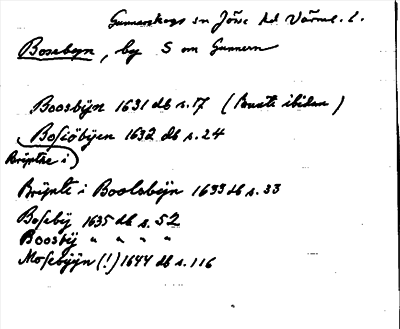 Gunnarskogs sn Jösse hd Värml. l.
Bosebyn, by S om Gunnern
Boosbÿn 1631 db s. 17 (Bryte ibidem)
Bosiöbÿen 1632 db s. 24
Brijtthe i
Brijte i Boolsbÿn 1633 db s. 33
Bosebÿ 1635 db s. 52
Boosbÿ " " " "
Mosebÿÿn (!) 1644 db s. 116